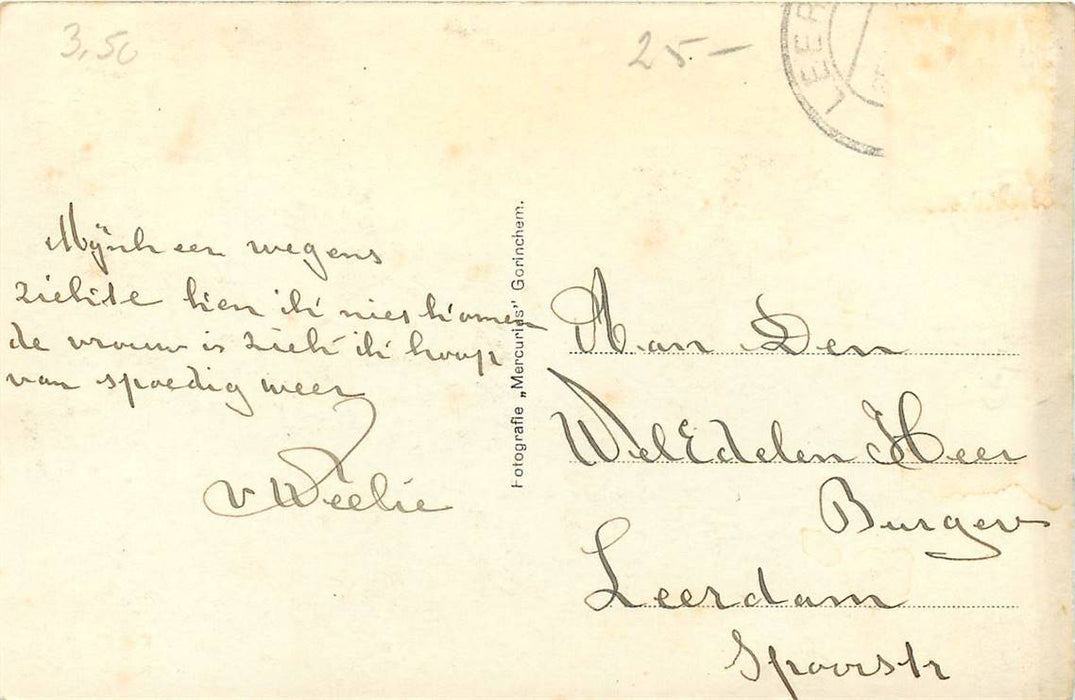 3,50
25.-
LEER
Mÿnheer wegens
ziekte kan ik niet komen
de vrouw is ziek ik hoop
van spoedig weer
v Weelie
Fotografie „Mercurius" Gorinchem.
Aan Den
WelEdelen Heer
Burger
Leerdam
Spoorstr